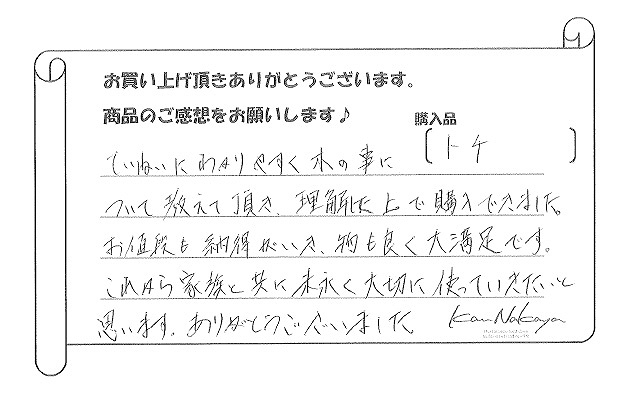 お買い上げ頂きありがとうございます。
商品のご感想をお願いします♪
購入品
〔トチ 〕
ていねいにわかりやすく木の事に
ついて教えて頂き、理解した上で購入できました。
お値段も納得がいき、物も良く大満足です。
これから家族と共に末永く大切に使っていきたいと
思います。ありがとうございました
Kan Nakaya